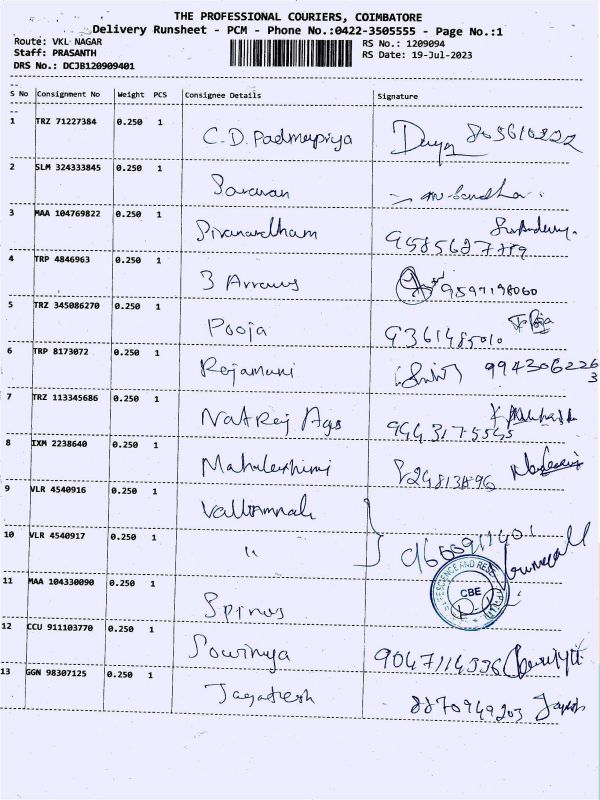 THE PROFESSIONAL COURIERS, COIMBATORE
Delivery Runsheet - PCM - Phone No.:0422-3505555 - Page No.:1
Route: VKL NAGAR RS No.: 1209094
Staff: PRASANTH RS Date: 19-Jul-2023
DRS No.: DCJB120909401
S No Consignment No Weight PCS Consignee Details Signature
1 TRZ 71227384 0.250 1 C.D. Padmapriya
2 SLM 324333845 0.250 1 Saravan
3 MAA 104769822 0.250 1
4 TRP 4846963 0.250 1 3 Arrows 9597198060
5 TRZ 345086270 0.250 1 Pooja
6 TRP 8173072 0.250 1 Rajamani 9943062263
7 TRZ 113345686 0.250 1 Natraj Ags 9443175545
8 IXM 2238640 0.250 1
9 VLR 4540916 0.250 1
10 VLR 4540917 0.250 1 "
11 MAA 104330090 0.250 1
CBE
12 CCU 911103770 0.250 1 Sowmya 9047114336
13 GGN 98307125 0.250 1 Jagatesh 8870949203